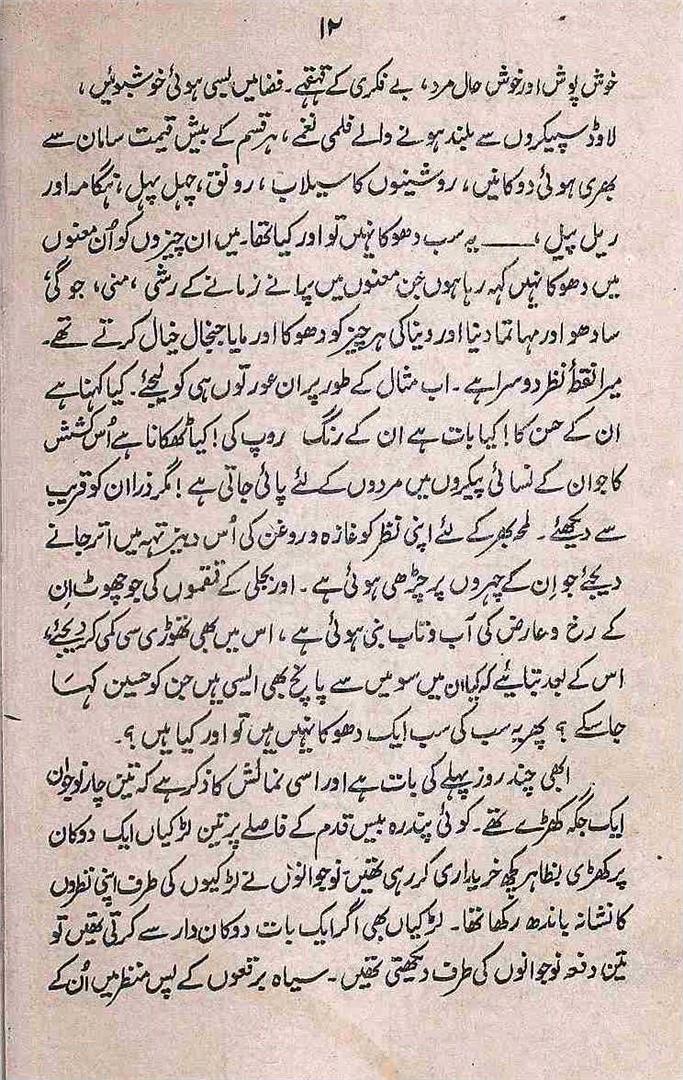 ۱۲
خوش پوش اور خوش حال مرد، بے فکری کے قہقہے۔ فضا میں بسی ہوئی خوشبوئیں،
لاوڈ سپیکروں سے بلند ہونے والے فلمی نغمے، ہر قسم کے بیش قیمت سامان سے
بھری ہوئی دوکانیں، روشنیوں کا سیلاب، رونق، چہل پہل، ہنگامہ اور
ریل پیل، ــــ یہ سب دھوکا نہیں تو اور کیا تھا۔ میں ان چیزوں کو اُن معنوں
میں دھوکا نہیں کہہ رہا ہوں جن معنوں میں پرانے زمانے کے رشی، منی، جوگی،
سادھو اور مہاتما دنیا اور دنیا کی ہر چیز کو دھوکا اور مایا جنجال خیال کرتے تھے۔
میرا نقطۂ نظر دوسرا ہے۔ اب مثال کے طور پر ان عورتوں ہی کو لیجئے۔ کیا کہنا ہے
ان کے حسن کا! کیا بات ہے ان کے رنگ روپ کی! کیا ٹھکانا ہے اُس کشش
کا جو ان کے نسائی پیکروں میں مردوں کے لئے پائی جاتی ہے! مگر ذرا ان کو قریب
سے دیکھئے۔ لمحہ بھر کے لئے اپنی نظر کو غازہ و روغن کی اُس دبیز تہہ میں اتر جانے
دیجئے جو اِن کے چہروں پر چڑھی ہوئی ہے۔ اور بجلی کے قمقموں کی جو چھوٹ اِن
کے رخ و عارض کی آب و تاب بنی ہوئی ہے، اس میں بھی تھوڑی سی کمی کر دیجئے،
اس کے بعد بتایئے کہ کیا ان میں سو میں سے پانچ بھی ایسی ہیں جن کو حسین کہا
جا سکے؟ پھر یہ سب کی سب ایک دھوکا نہیں ہیں تو اور کیا ہیں؟۔
ابھی چند روز پہلے کی بات ہے اور اسی نمائش کا ذکر ہے کہ تین چار نوجوان
ایک جگہ کھڑے تھے۔ کوئی پندرہ بیس قدم کے فاصلے پر تین لڑکیاں ایک دوکان
پر کھڑی بظاہر کچھ خریداری کر رہی تھیں۔ نوجوانوں نے لڑکیوں کی طرف اپنی نظروں
کا نشانہ باندھ رکھا تھا۔ لڑکیاں بھی اگر ایک بات دوکان دار سے کرتی تھیں تو
تین دفعہ نوجوانوں کی طرف دیکھتی تھیں۔ سیاہ برقعوں کے پس منظر میں اُن کے